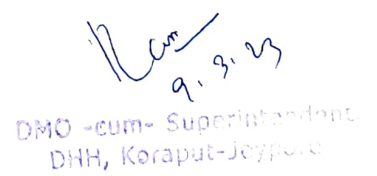 9.3.23
DMO -cum- Superintendent
DHH, Koraput-Jeypore